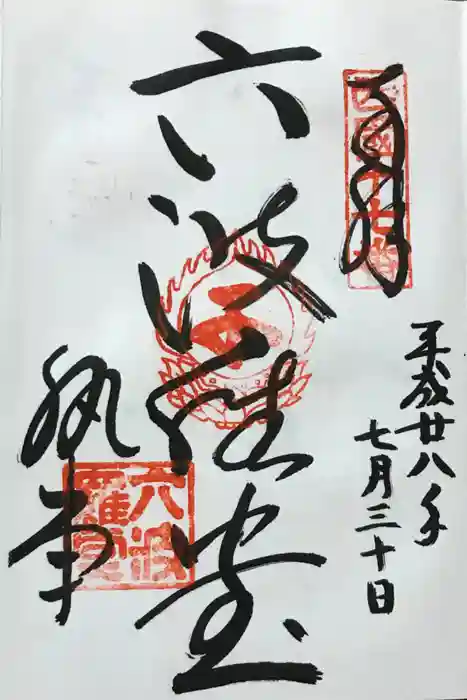 奉拝
西國十七番
平成廿八年
七月三十日
六波羅堂
執事
六波
羅堂